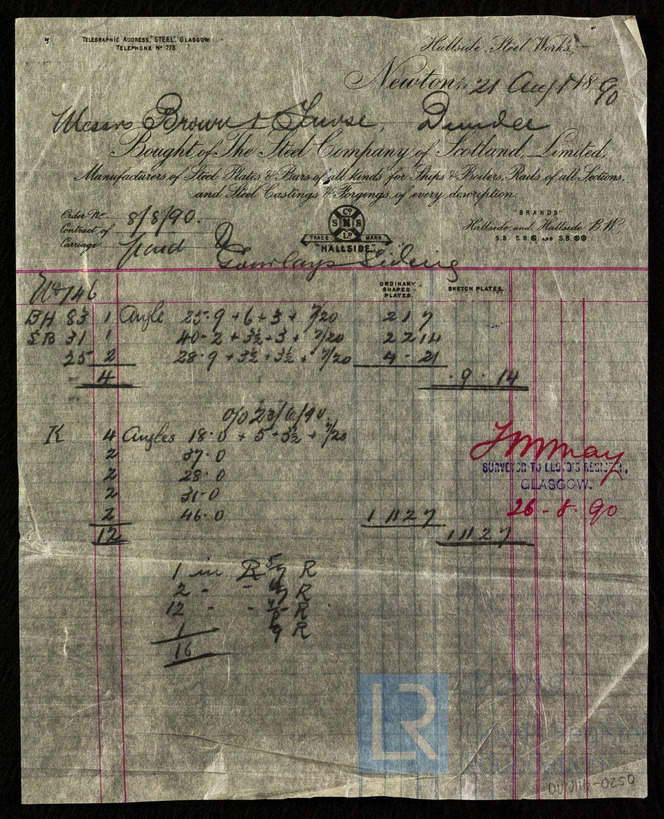 TELEGRAPHIC ADDRESS, "STEEL", GLASGOW.
TELEPHONE No 773.
Hallside Steel Works,
Newton, 21 Augt 1890
Messrs Brown & Dundee
Bought of The Steel Company of Scotland, Limited,
Manufacturers of Steel Plates & Bars of all kinds for Ships & Boilers, Rails of all Sections,
and Steel Castings & Forgings of every description.
Order No 8/8/90.
Contract of
Carriage paid
TRADE MARK
"HALLSIDE"
"BRANDS"
Hallside and Hallside B.W.
Gourlays Siding
ORDINARY SHAPED PLATES.
SKETCH PLATES.
BH 83 1 Angle 25-9 + 6 + 3 + 7/20 2 1 7
SB 31 1 40-2 + 3½ + 3 + 7/20 2 2 14
25 2 28-9 + 3½ + 3½ + 7/20 4 - 21
4 9 - 14
o/o 23/6/90.
K 4 Angles 18-0 + 5 + 3½ + 7/20
2 37-0
2 28-0
2 31-0
2 46-0 1 11 2 7
12 1 11 2 7
SURVEYOR TO LLOYD'S REGISTER,
GLASGOW.
26-8-90
1 in R R
2 - - R
12 - - R
1 9 R
16
LR